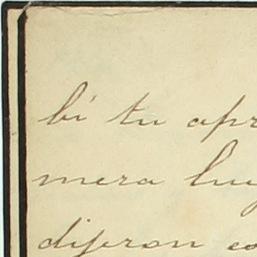 bí tu apr
mera lug
dijeron co